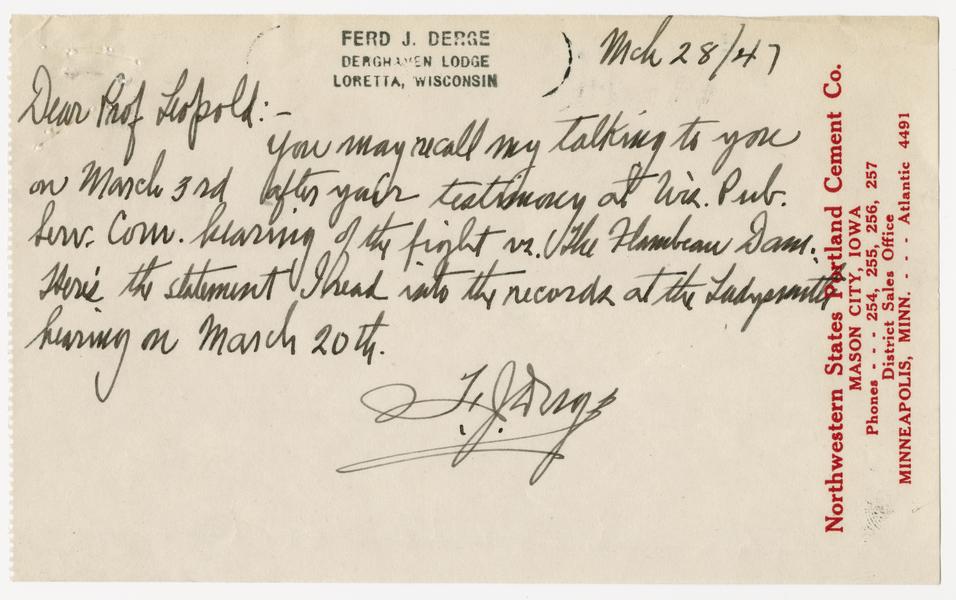 FERD J. DERGE
DERGHAVEN LODGE
LORETTA, WISCONSIN
Mch 28/47
Dear Prof Leopold:-
You may recall my talking to you
on March 3rd after your testimony at Wis. Pub.
Serv. Com. hearing of the fight vs. The Flambeau Dam.
Here's the statement I read into the records at the Ladysmith
hearing on March 20th.
F. J. Derge
Northwestern States Portland Cement Co.
MASON CITY, IOWA
Phones - - - 254, 255, 256, 257
District Sales Office
MINNEAPOLIS, MINN. - - - Atlantic 4491